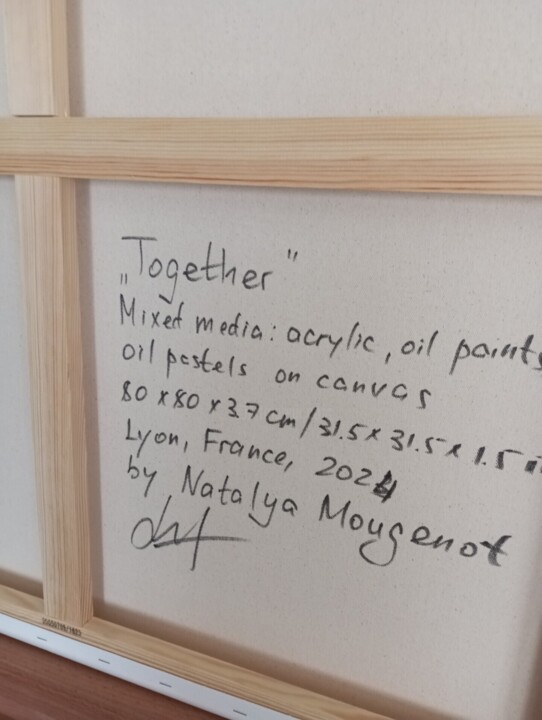 „Together"
Mixed media: acrylic, oil paints
oil pastels on canvas
80 x 80 x 3.7 cm / 31.5 x 31.5 x 1.5 i
Lyon, France, 2024
by Natalya Mougenot